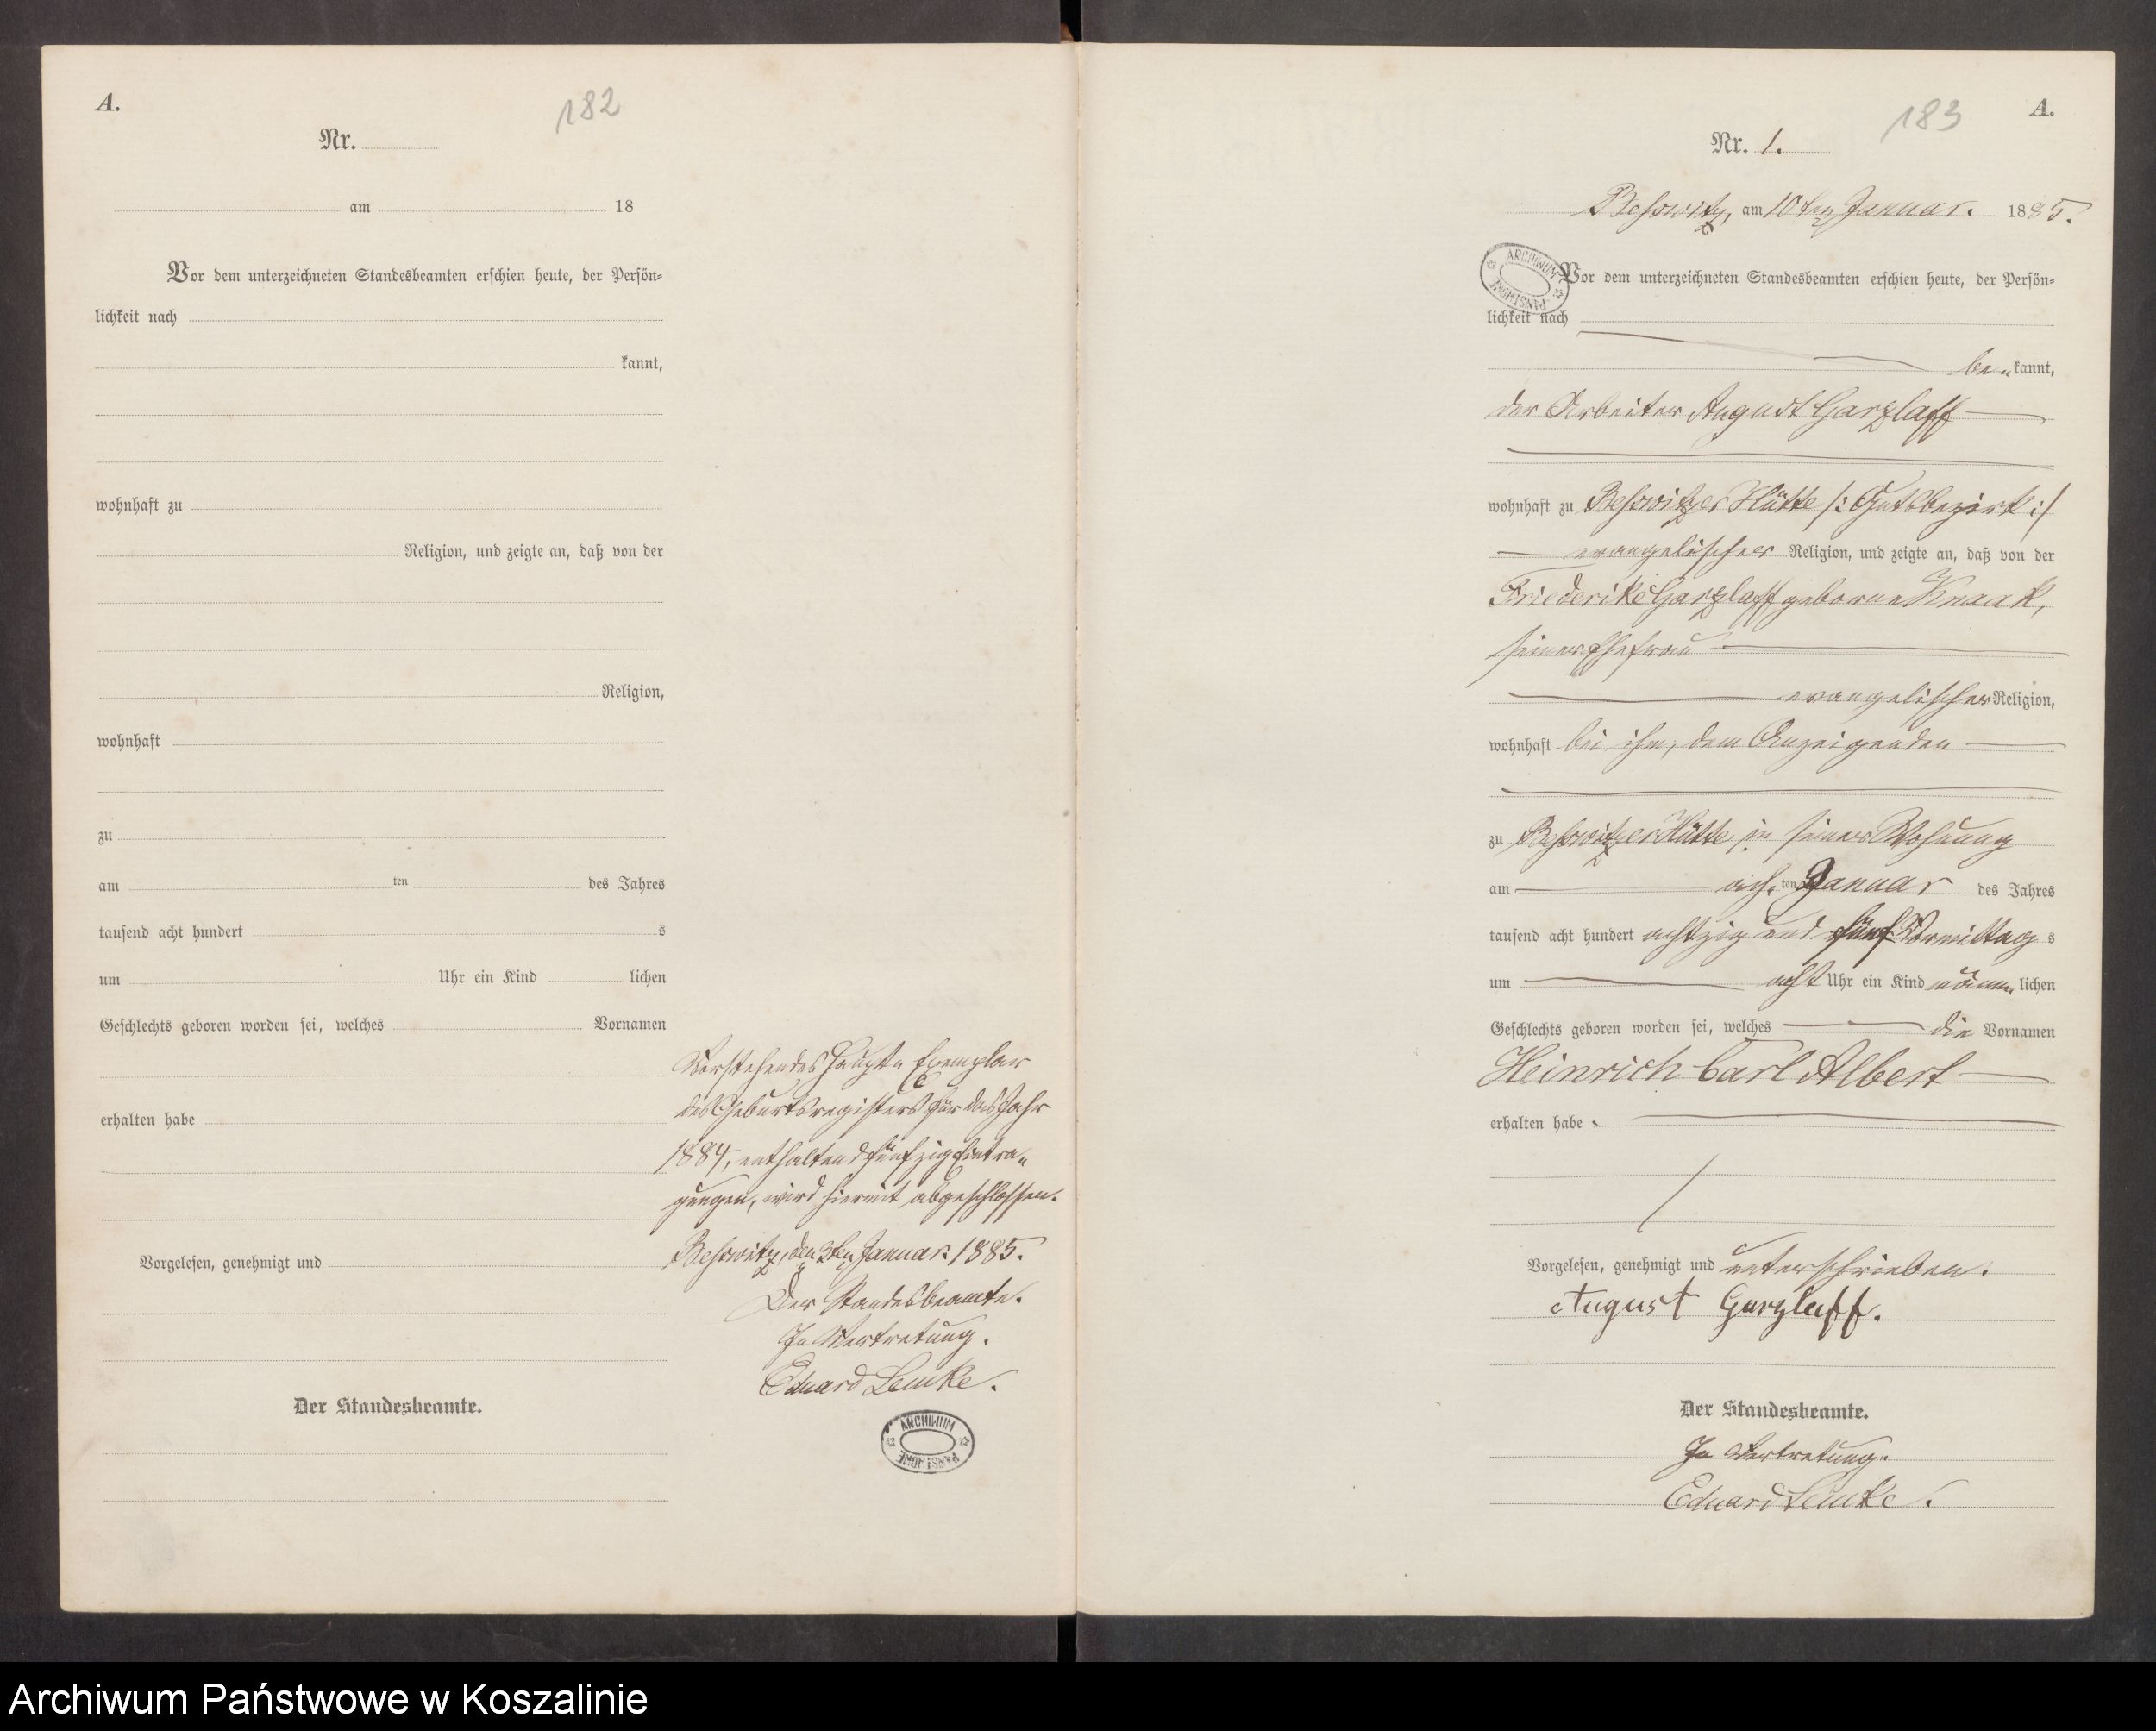 A.
182
Nr.
am 18
Vor dem unterzeichneten Standesbeamten erschien heute, der Persön-
lichkeit nach
kannt,
wohnhaft zu
Religion, und zeigte an, daß von der
Religion,
wohnhaft
zu
am ten des Jahres
tausend acht hundert s
um Uhr ein Kind lichen
Geschlechts geboren worden sei, welches Vornamen
erhalten habe
Vorgelesen, genehmigt und
Der Standesbeamte.
Vorstehendes Haupt- Exemplar
des Geburtsregisters für das Jahr
1884, enthaltend fünfzig Eintra-
gungen, wird hiermit abgeschlossen.
Beßwitz, den 3ten Januar 1885.
Der Standesbeamte.
In Vertretung.
Eduard Lemke.
ARCHIWUM PAŃSTWOWE
183
A.
Nr. 1.
Beßwitz, am 10ten Januar. 1885.
ARCHIWUM PAŃSTWOWE
Vor dem unterzeichneten Standesbeamten erschien heute, der Persön-
lichkeit nach
be-kannt,
der Arbeiter August Garzlaff
wohnhaft zu Beßwitzer Hütte /: Gutsbezirk :/
evangelischer Religion, und zeigte an, daß von der
Friederike Garzlaff geborne Knaak,
seiner Ehefrau
evangelischer Religion,
wohnhaft bei ihm, dem Anzeigenden
zu Beßwitzer Hütte in seiner Wohnung
am ach-ten Januar des Jahres
tausend acht hundert achtzig und fünf Vormittags
um acht Uhr ein Kind männ-lichen
Geschlechts geboren worden sei, welches die Vornamen
Heinrich Carl Albert
erhalten habe.
Vorgelesen, genehmigt und unterschrieben.
August Garzlaff.
Der Standesbeamte.
In Vertretung.
Eduard Lemke.
Archiwum Państwowe w Koszalinie